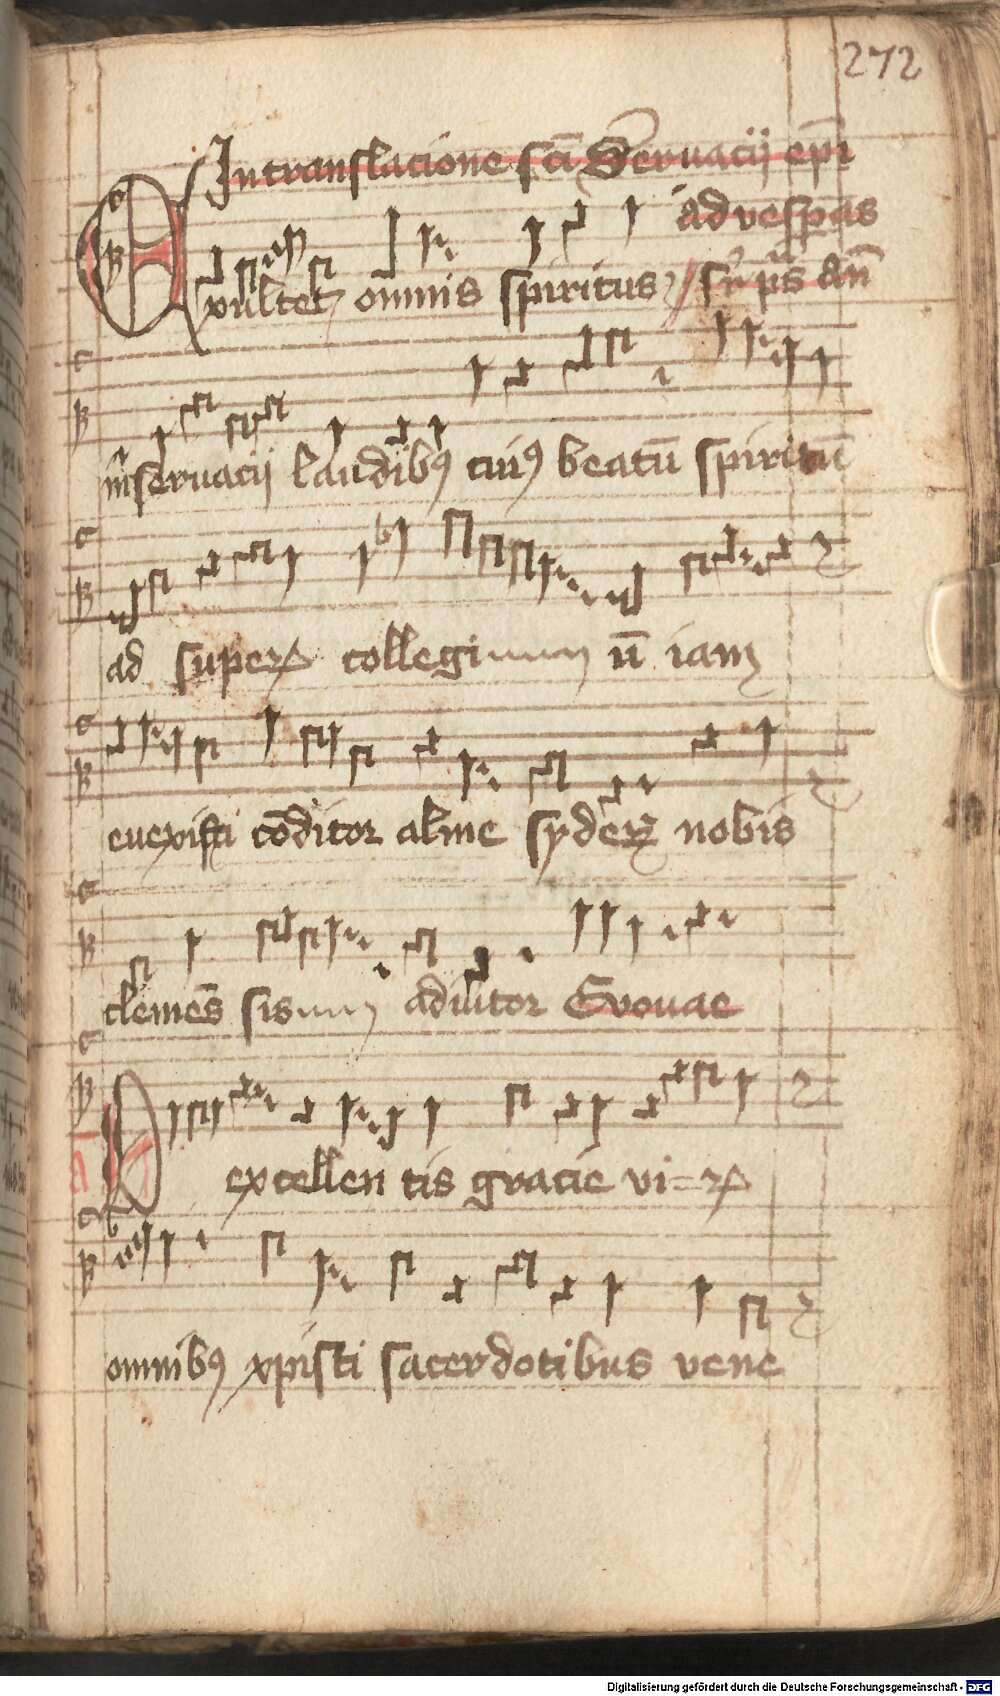 272
In translacione sci Seruacii epi
ad vesperas
Exultet omnis spiritus sr ps an
in seruacii laudibus cuius beatu spiritu
ad superorum collegium n iam
euexisti coditor alme syderum nobis
clemes sis adiutor Evouae
excellen tis gracie vi=rorum
omnibus xpisti sacerdotibus vene
Digitalisierung gefördert durch die Deutsche Forschungsgemeinschaft - DFG